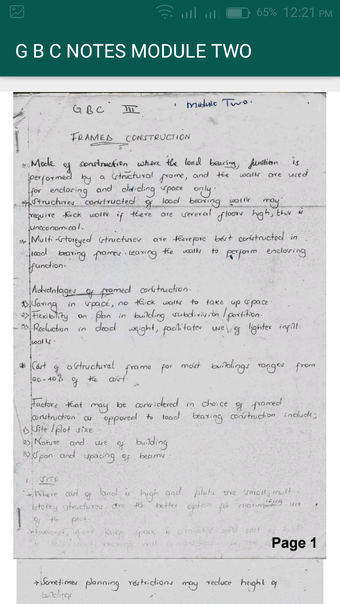 65% 12:21 PM
G B C NOTES MODULE TWO
GBC III Module Two.
FRAMED CONSTRUCTION
Mode of construction where the load bearing function is
performed by a structural frame, and the walls are used
for enclosing and dividing space only.
Structures constructed of load bearing walls may
require thick walls if there are several floors high, this is
uneconomical.
Multi-storeyed structures are therefore best constructed in
load bearing frames leaving the walls to perform enclosing
function.
Advantages of framed construction.
1) Saving in space, no thick walls to take up space
2) Flexibility on plan in building subdivision/partition.
3) Reduction in dead weight, facilitates use of lighter infill
walls.
Cost of a structural frame for most buildings ranges from
20-40% of the cost.
Factors that may be considered in choice of framed
construction as opposed to load bearing construction include;
1) Site/plot size
2) Nature and use of building
3) Span and spacing of beams
1. SITE
→ Where cost of land is high and plots are small, multi-
storey structures are the better option for maximum use
of the
space is available and cost of
Page 1
→ Sometimes planning restrictions may reduce height of
buildings